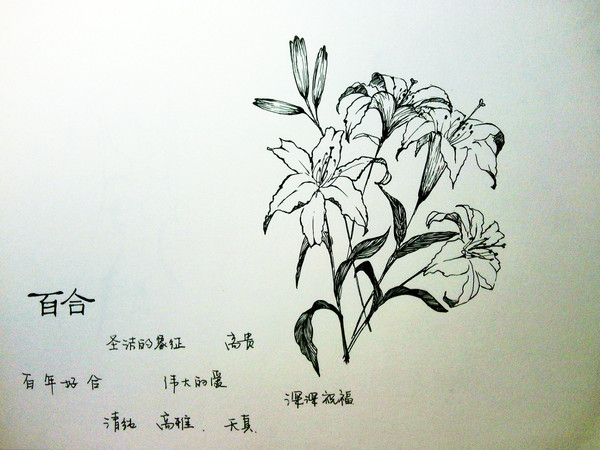 百合
圣洁的象征 高贵
百年好合 伟大的爱
深深祝福
清纯 高雅、天真